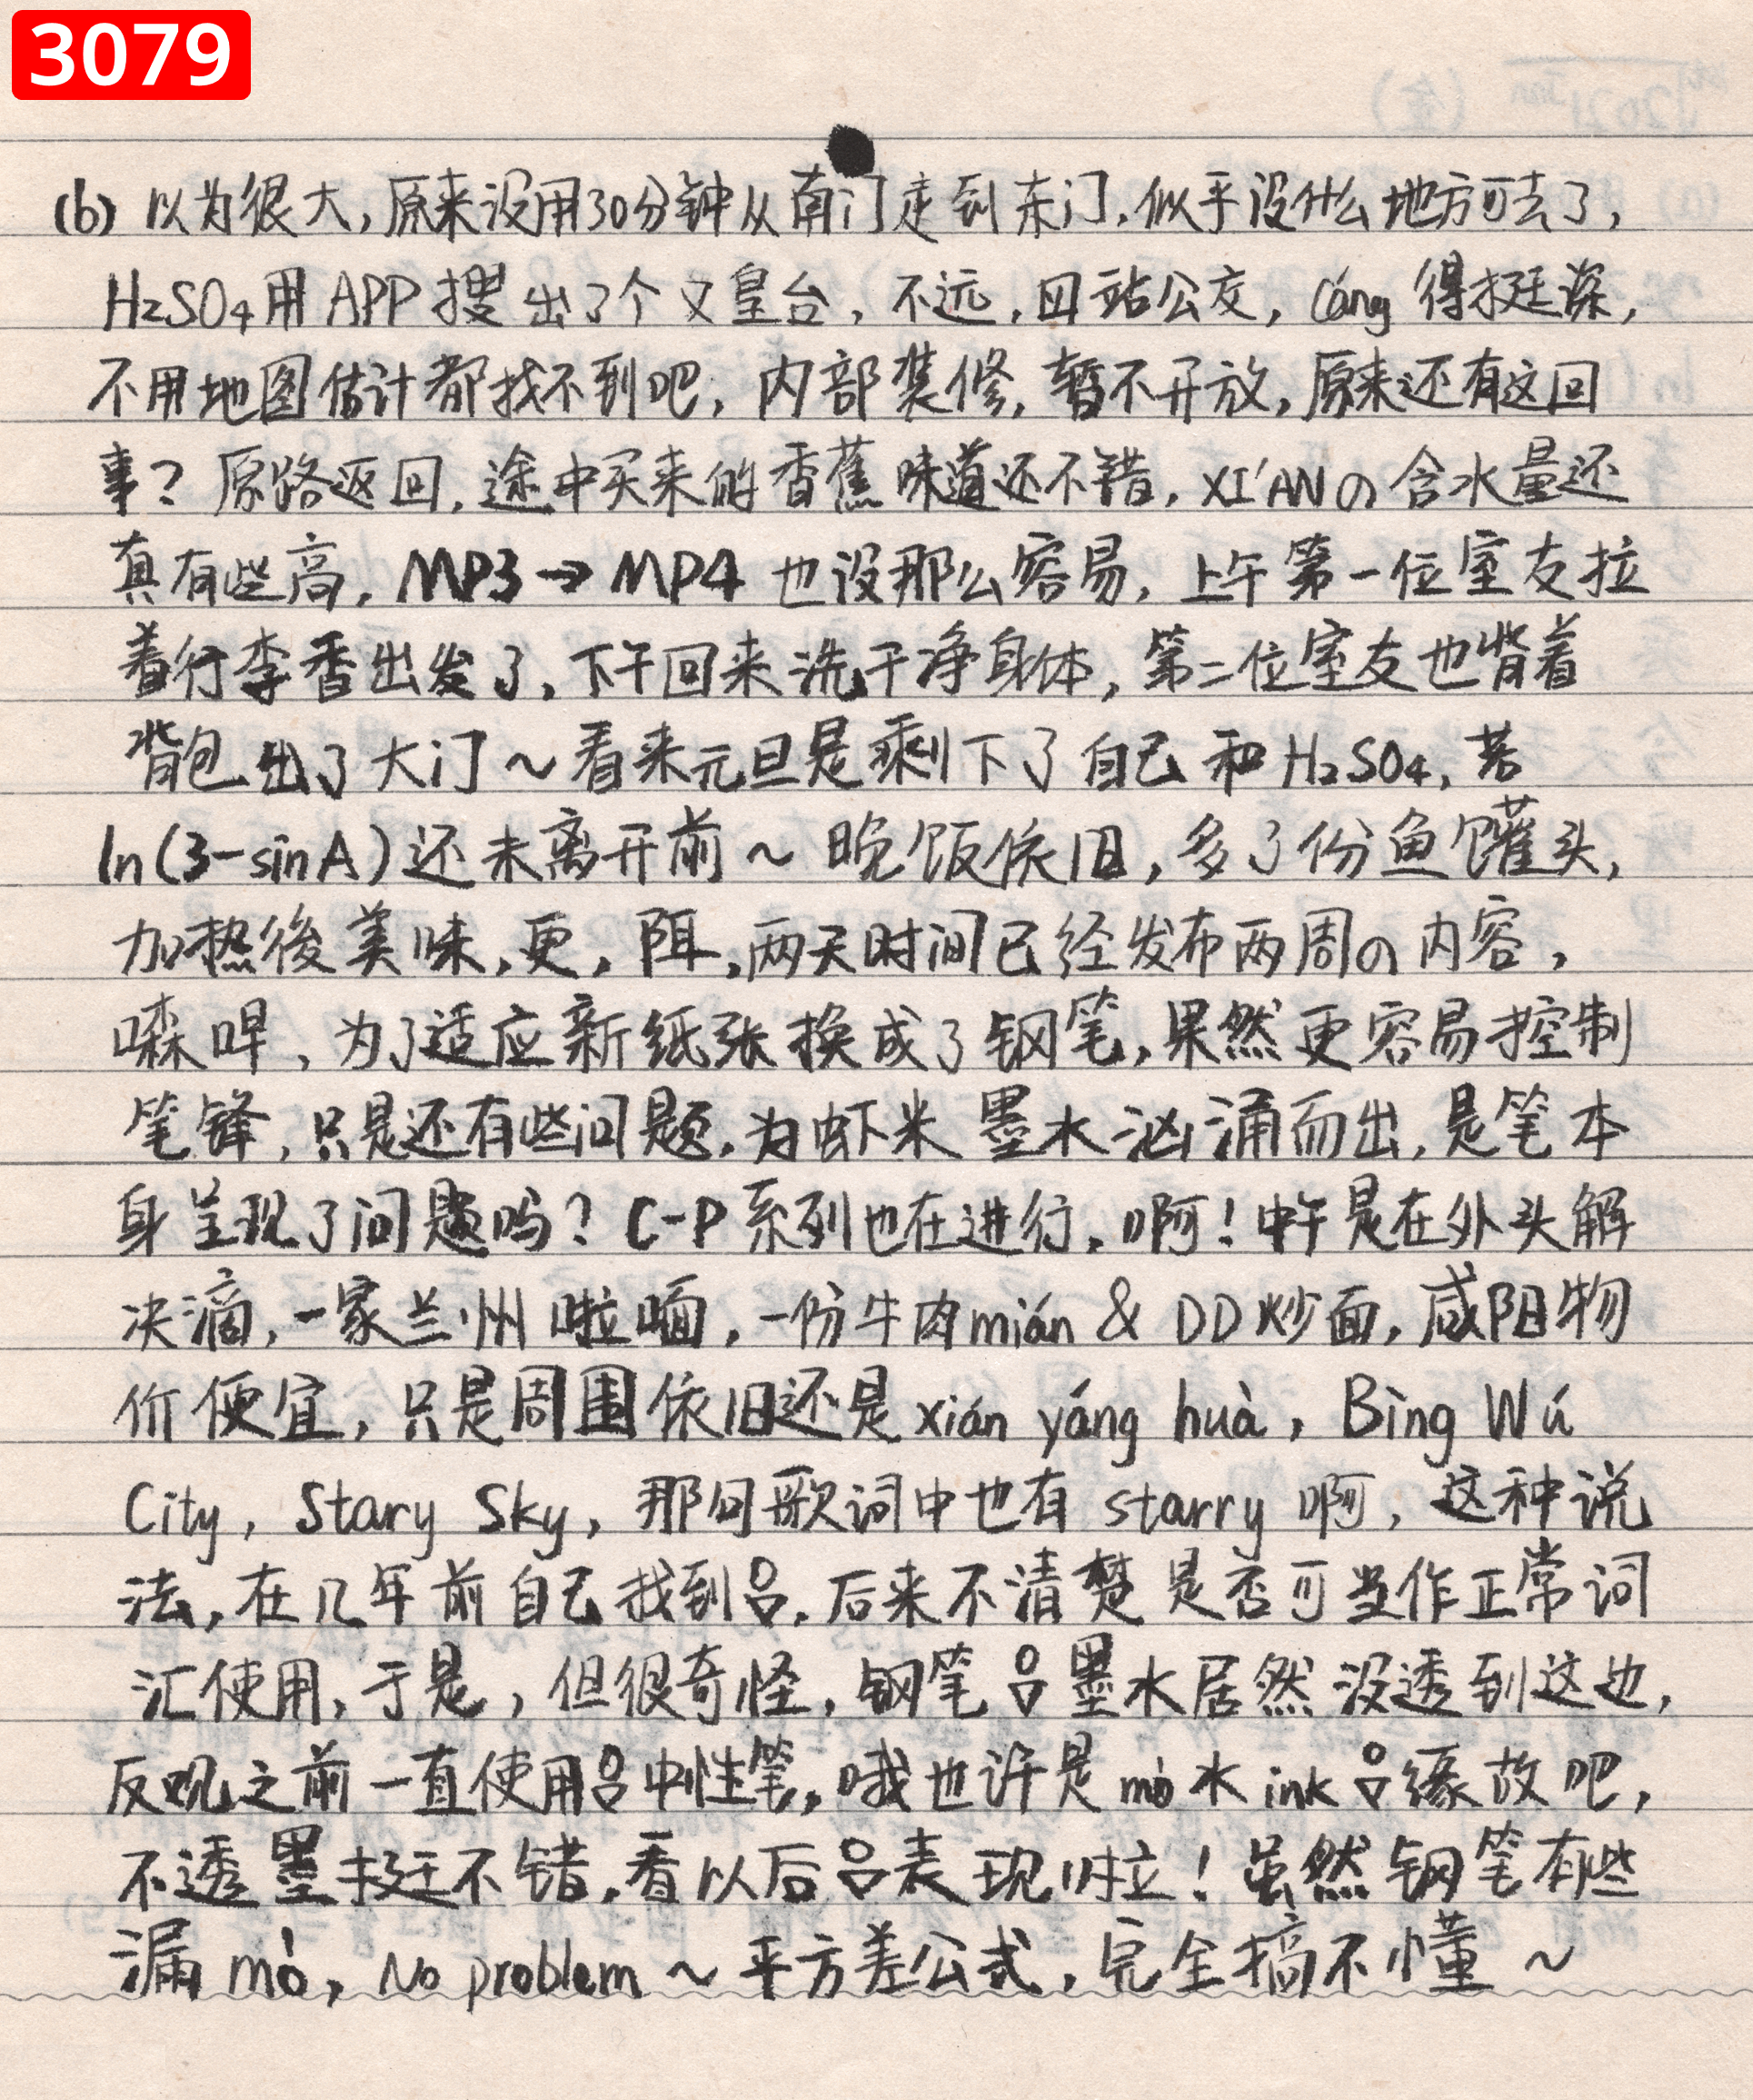 3079
(b) 以为很大,原来没用30分钟从南门走到东门,似乎没什么地方可去了,
H₂SO₄用APP搜出了个义皇台,不远,四站公交,Cáng得挺深,
不用地图估计都找不到吧,内部装修,暂不开放,原来还有这回
事?原路返回,途中买来的香蕉味道还不错,XI'ANの含水量还
真有些高,MP3→MP4也没那么容易,上午第一位室友拉
着行李香出发了,下午回来洗干净身体,第二位室友也背着
背包出了大门~看来元旦是剩下了自己和H₂SO₄,若
ln(3-sinA)还未离开前~晚饭依旧,多了份鱼罐头,
加热後美味,更,,两天时间已经发布两周の内容,
,为了适应新纸张换成了钢笔,果然更容易控制
笔锋,只是还有些问题,为虾米墨水汹涌而出,是笔本
身呈现了问题吗?C-P系列也在进行,啊!中午是在外头解
决滴,一家兰州啦喕,一份牛肉mián & DD炒面,咸阳物
价便宜,只是周围依旧还是xián yáng huà,Bìng Wú
City,Stary Sky,那句歌词中也有starry啊,这种说
法,在几年前自己找到吕,后来不清楚是否可当作正常词
汇使用,于是,但很奇怪,钢笔吕墨水居然没透到这边,
反观之前一直使用吕中性笔,哦也许是mò水ink吕缘故吧,
不透墨挺不错,看以后吕表现啦!虽然钢笔有些
漏mò,No problem~平方差公式,完全搞不懂~